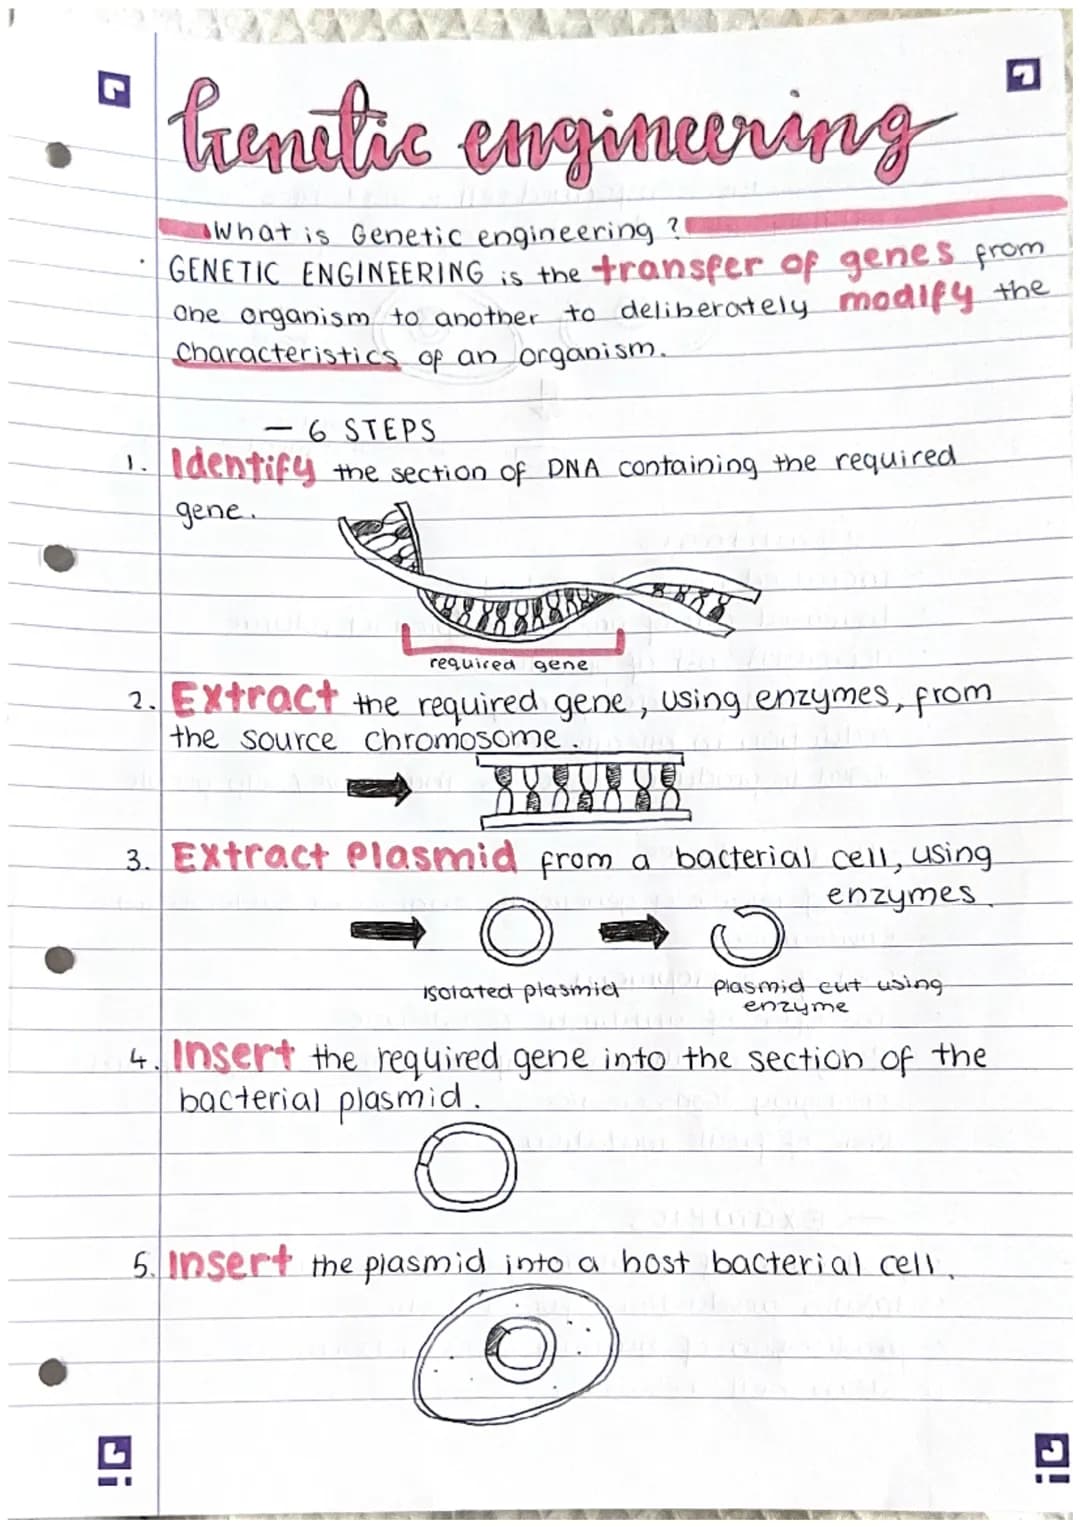 Genetic engineering
What is Genetic engineering ?
· GENETIC ENGINEERING is the transfer of genes from
one organism to another to deliberately modify the
characteristics of an organism.
— 6 STEPS
1. Identify the section of DNA containing the required
gene.
required gene
2. Extract the required gene, using enzymes, from
the source chromosome.
3. Extract Plasmid from a bacterial cell, using
enzymes.
isolated plasmid
Plasmid cut using
enzyme
4. Insert the required gene into the section of the
bacterial plasmid.
5. Insert the plasmid into a host bacterial cell.